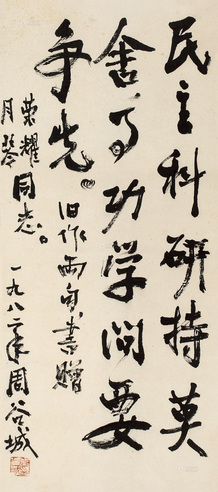 民主科研持莫
舍，事功学问要
争先。旧作两句书赠
荣耀
月琴同志。
一九八二年周谷城